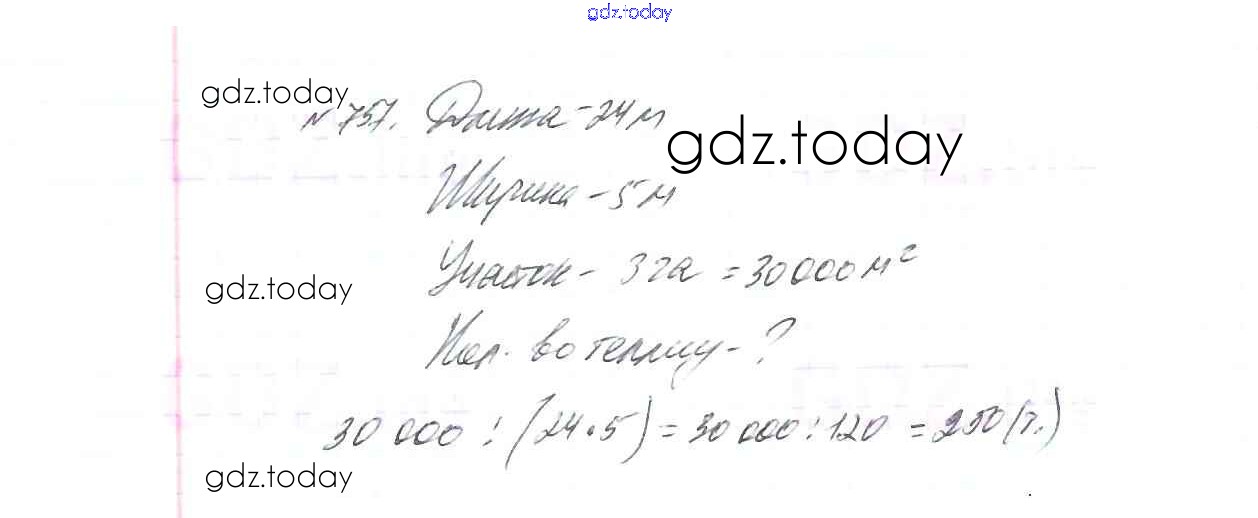 gdz.today
gdz.today
№ 757. Длина - 24 м
gdz.today
Ширина - 5 м
Участок - 3 га = 30000 м²
gdz.today
Кол. во теплиц - ?
30 000 : (24 • 5) = 30 000 : 120 = 250 (т.)
gdz.today